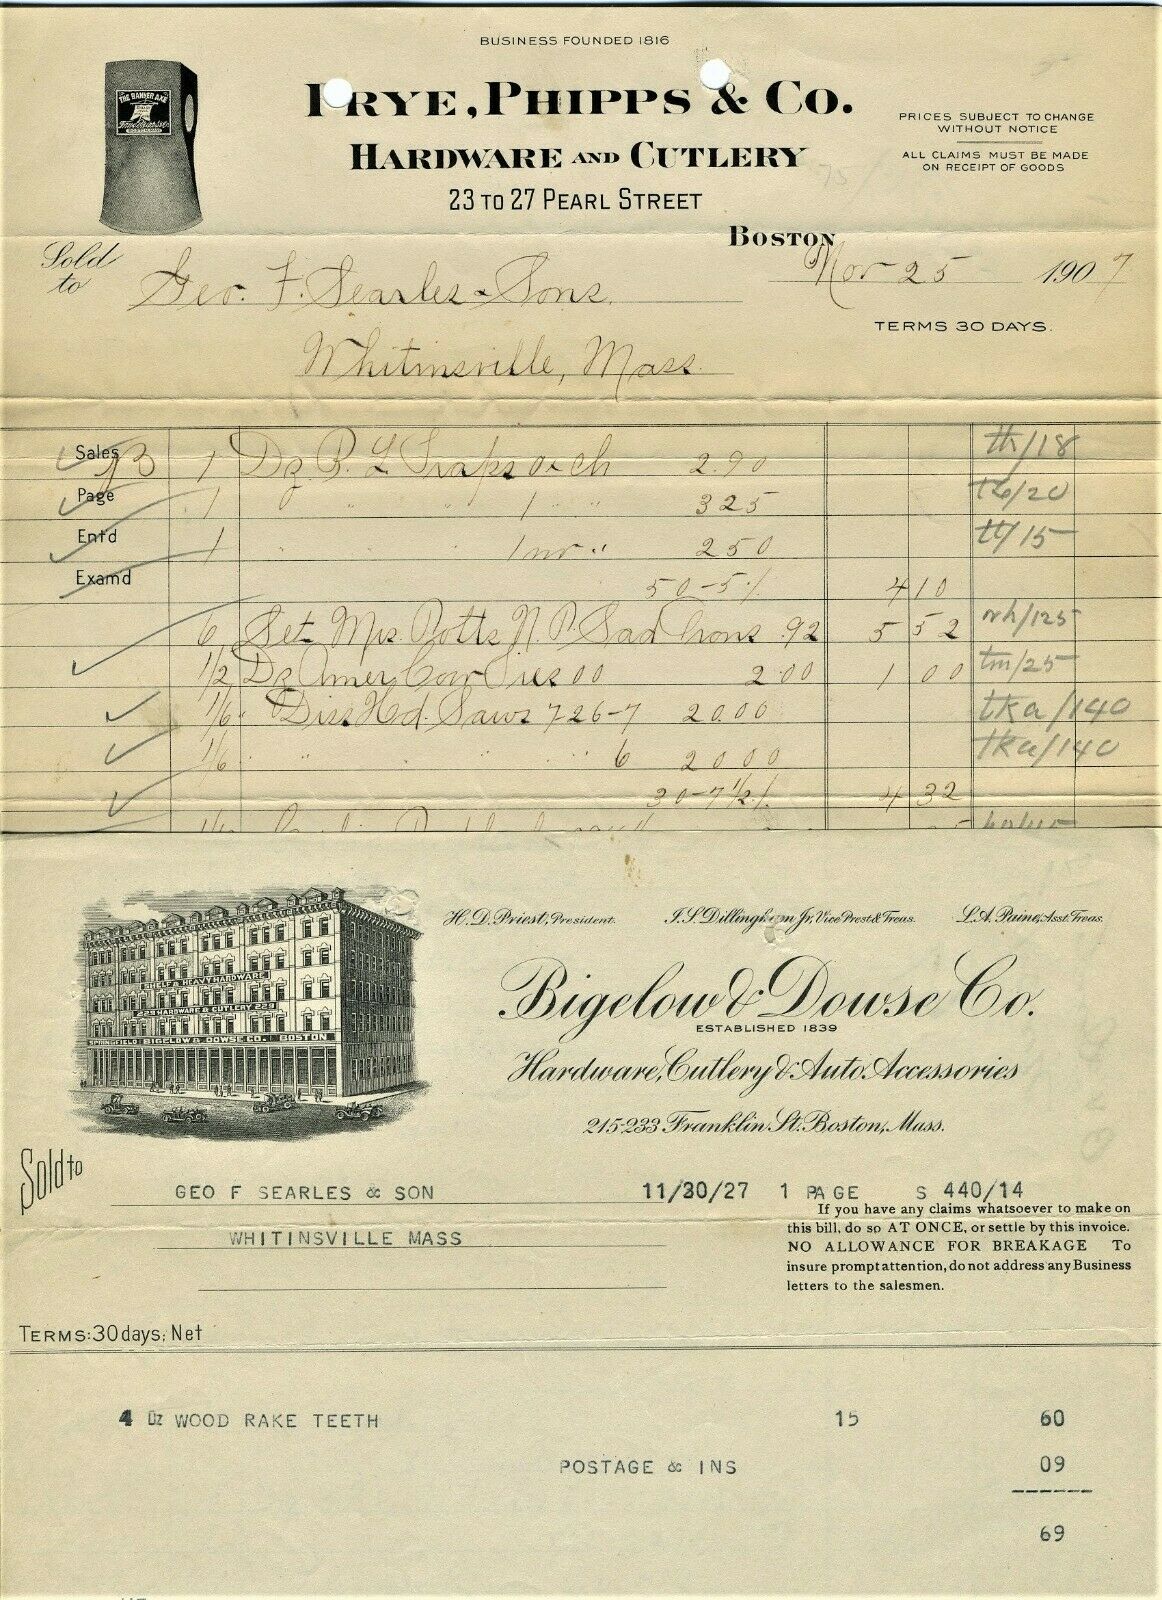 BUSINESS FOUNDED 1816
FRYE, PHIPPS & CO.
HARDWARE AND CUTLERY
23 TO 27 PEARL STREET
BOSTON
THE BANNER AXE
PRICES SUBJECT TO CHANGE
WITHOUT NOTICE
ALL CLAIMS MUST BE MADE
ON RECEIPT OF GOODS
Nov 25 1907
Sold to Geo. F. Searles & Sons.
TERMS 30 DAYS.
Whitinsville, Mass.
Sales 13 1 Dz 2.90 th/18
Page 1 " " 1 " " 325 /20
Entd 1 " " " 1 " 250 /15
Examd 50-5% 4 10
6 Set Mrs. Potts N. P. Sad Irons .92 5 52 /125
1/2 Dz Amer Cow Ties 00 2.00 1 00 tm/25
1/6 " Diss Hd. Saws 726-7 20.00 tka/140
1/6 " " " 6 20 00 tka/140
30-7 1/2% 4 32
H. D. Priest, President. I. S. Dillingham Jr. Vice Prest & Treas. L. A. Paine, Asst. Treas.
SHELF & HEAVY HARDWARE
229 HARDWARE & CUTLERY 229
SPRINGFIELD BIGELOW & DOWSE CO. BOSTON
Bigelow & Dowse Co.
ESTABLISHED 1839
Hardware, Cutlery & Auto. Accessories
215-233 Franklin St. Boston, Mass.
Sold to
GEO F SEARLES & SON 11/30/27 1 PAGE S 440/14
WHITINSVILLE MASS
If you have any claims whatsoever to make on
this bill, do so AT ONCE, or settle by this invoice.
NO ALLOWANCE FOR BREAKAGE To
insure prompt attention, do not address any Business
letters to the salesmen.
TERMS: 30 days; Net
4 DZ WOOD RAKE TEETH 15 60
POSTAGE & INS 09
69